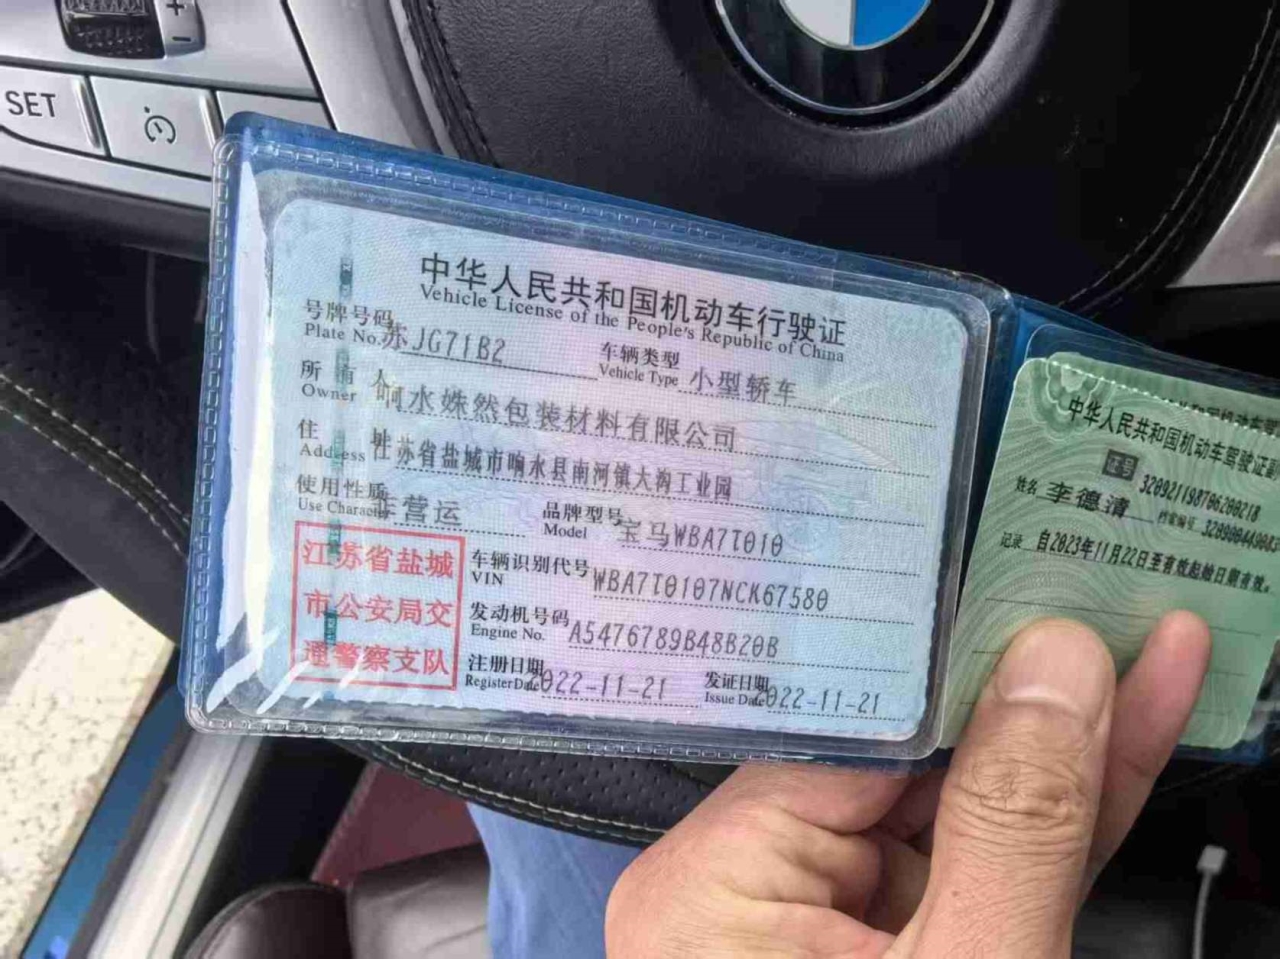 SET
中华人民共和国机动车行驶证
Vehicle License of the People's Republic of China
号牌号码 苏JG71B2 车辆类型 小型轿车
Plate No. Vehicle Type
所有人 响水姝然包装材料有限公司
Owner
住址 江苏省盐城市响水县南河镇大沟工业园
Address
使用性质 非营运 品牌型号 宝马WBA7T010
Use Character Model
江苏省盐城
市公安局交
通警察支队
车辆识别代号 WBA7T0107NCK67580
VIN
发动机号码 A5476789B48B20B
Engine No.
注册日期 2022-11-21 发证日期 2022-11-21
Register Date Issue Date
中华人民共和国机动车驾驶证副
证号 320921198706200218
姓名 李德清 档案编号
记录 自2023年11月22日至有效起始日期有效。